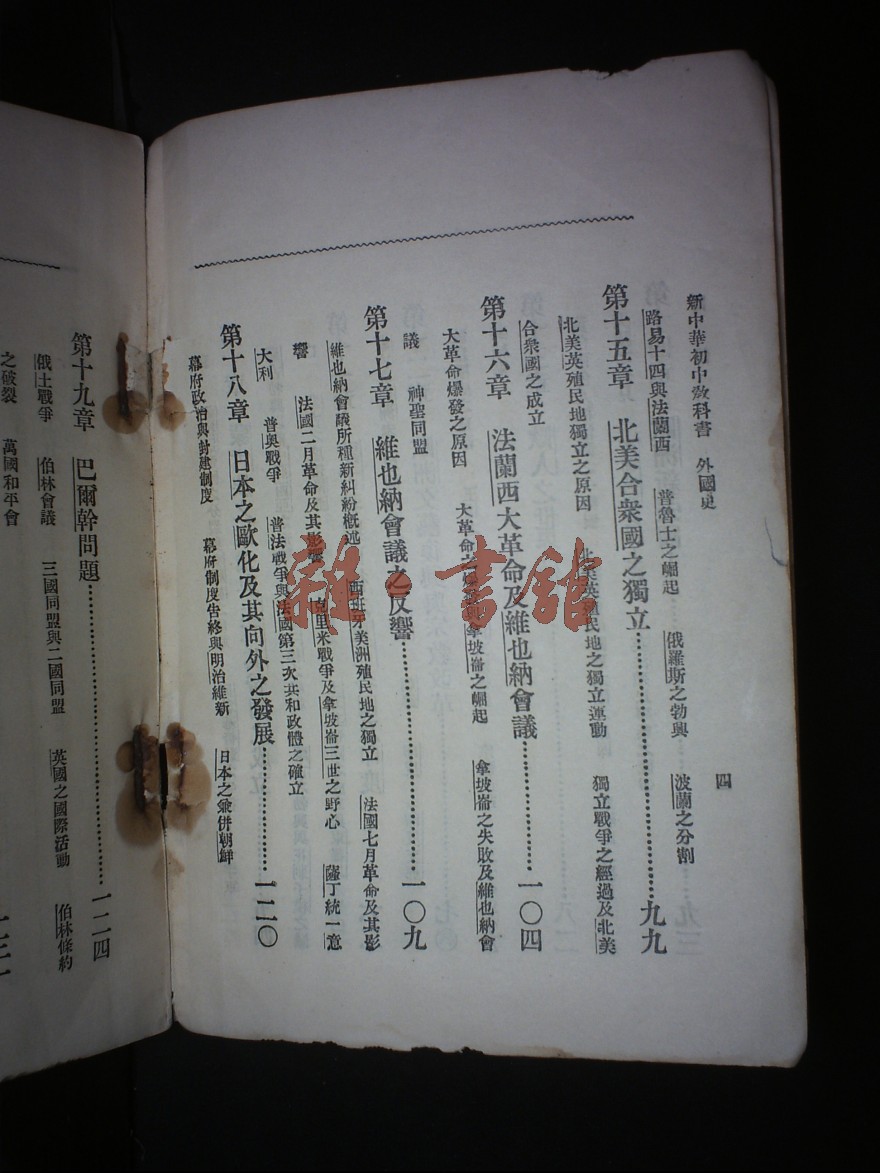 新中華初中教科書　外國史　四
路易十四與法蘭西　普魯士之崛起　俄羅斯之勃興　波蘭之分割
第十五章　北美合衆國之獨立……九九
北美英殖民地獨立之原因　北美英殖民地之獨立運動　獨立戰爭之經過及北美
合衆國之成立
第十六章　法蘭西大革命及維也納會議……一〇四
大革命爆發之原因　大革命之爆發與拿坡崙之崛起　拿坡崙之失敗及維也納會
議　神聖同盟
第十七章　維也納會議之反響……一〇九
維也納會議所種新糾紛概述　西班牙美洲殖民地之獨立　法國七月革命及其影
響　法國二月革命及其影響　克里米戰爭及拿坡崙三世之野心　薩丁統一意
大利　普奧戰爭　普法戰爭與法國第三次共和政體之確立
第十八章　日本之歐化及其向外之發展……一二〇
幕府政治與封建制度　幕府制度告終與明治維新　日本之兼併朝鮮
第十九章　巴爾幹問題……一二四
俄土戰爭　伯林會議　三國同盟與二國同盟　英國之國際活動　伯林條約
之破裂　萬國和平會
雜·書舘